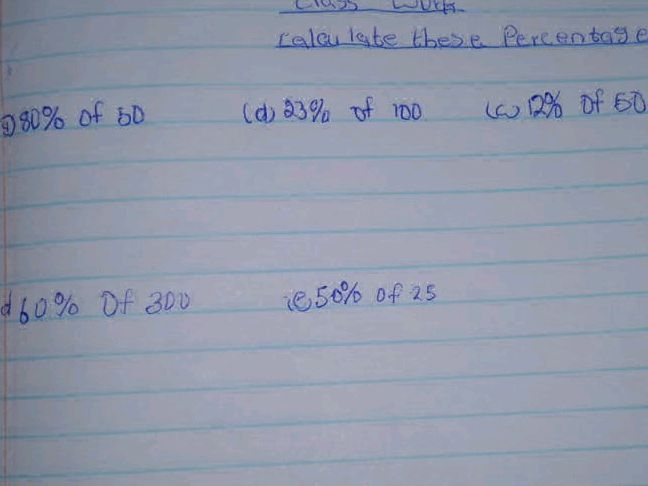 Class Work
Calculate these Percentage
a) 80% of 50 (d) 23% of 100 (c) 12% Of 50
d 60% Of 300 (e) 50% of 25